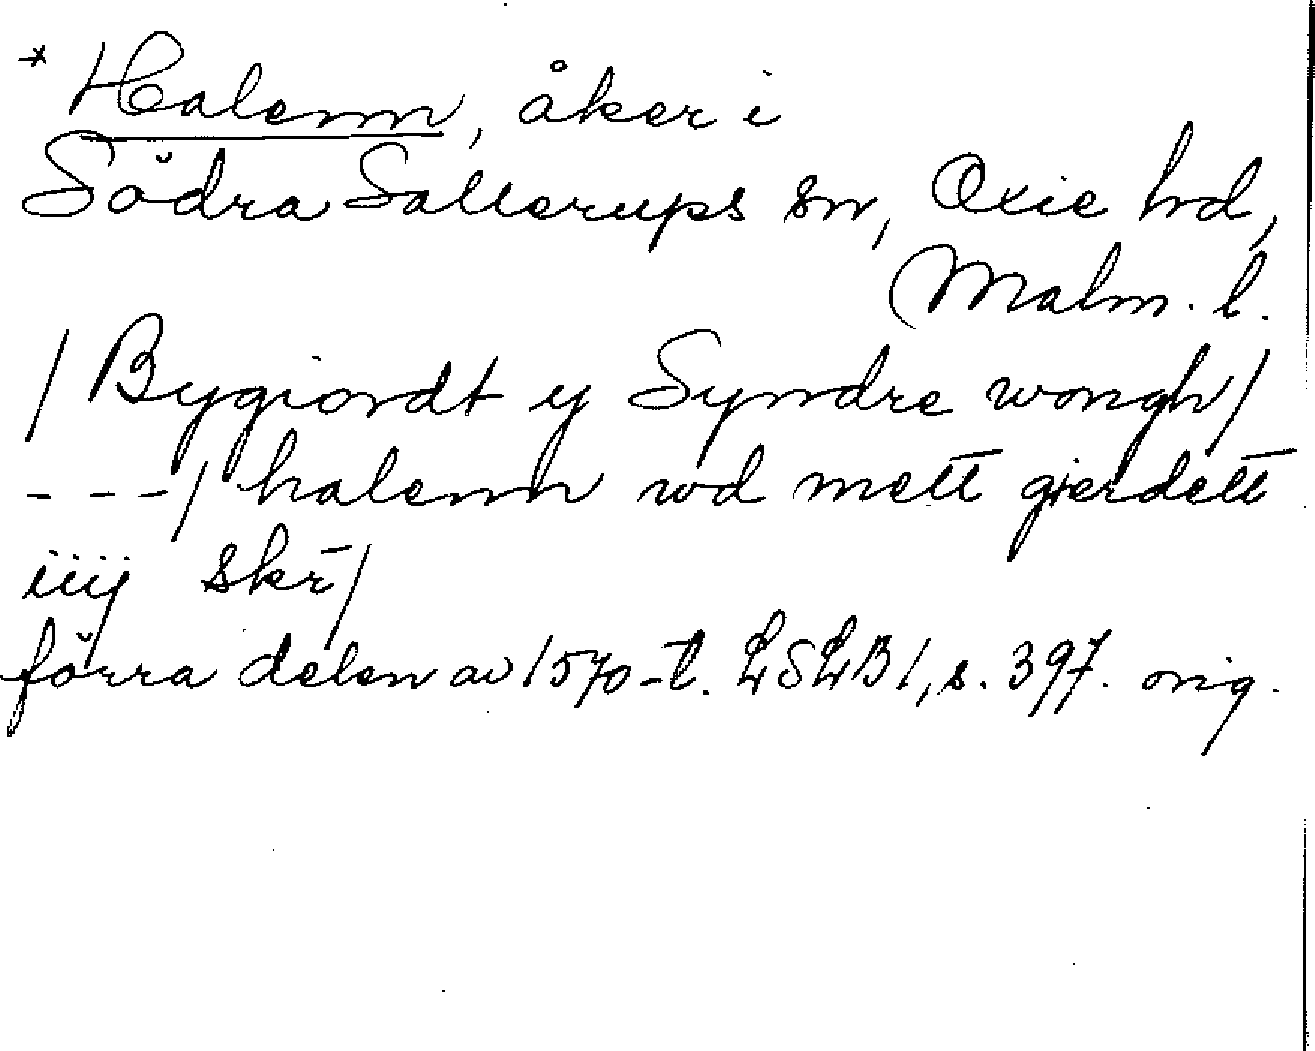 * Halenn, åker i
Södra Sallerups sn, Oxie hd,
Malm. l.
/ Bygiordt y Syndre wongh/
- - -/ halenn wd mett gierdett
iiij skr̄/
förra delen av 1570-t. LSLB 1, s. 397. orig.